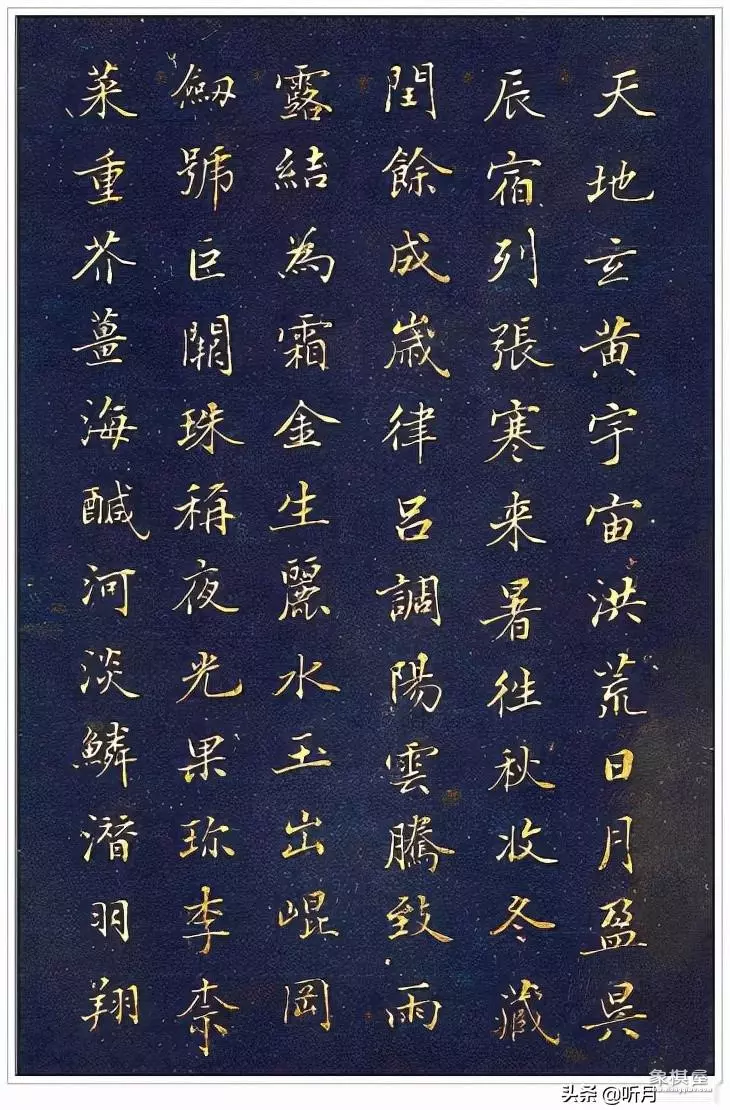 天地玄黄宇宙洪荒日月盈昃
辰宿列張寒来暑徃秋收冬藏
閏餘成歲律呂調陽雲騰致雨
露結為霜金生麗水玉出崐岡
劔號巨闕珠稱夜光果珎李柰
菜重芥薑海鹹河淡鱗潛羽翔
象棋屋
头条 @听月